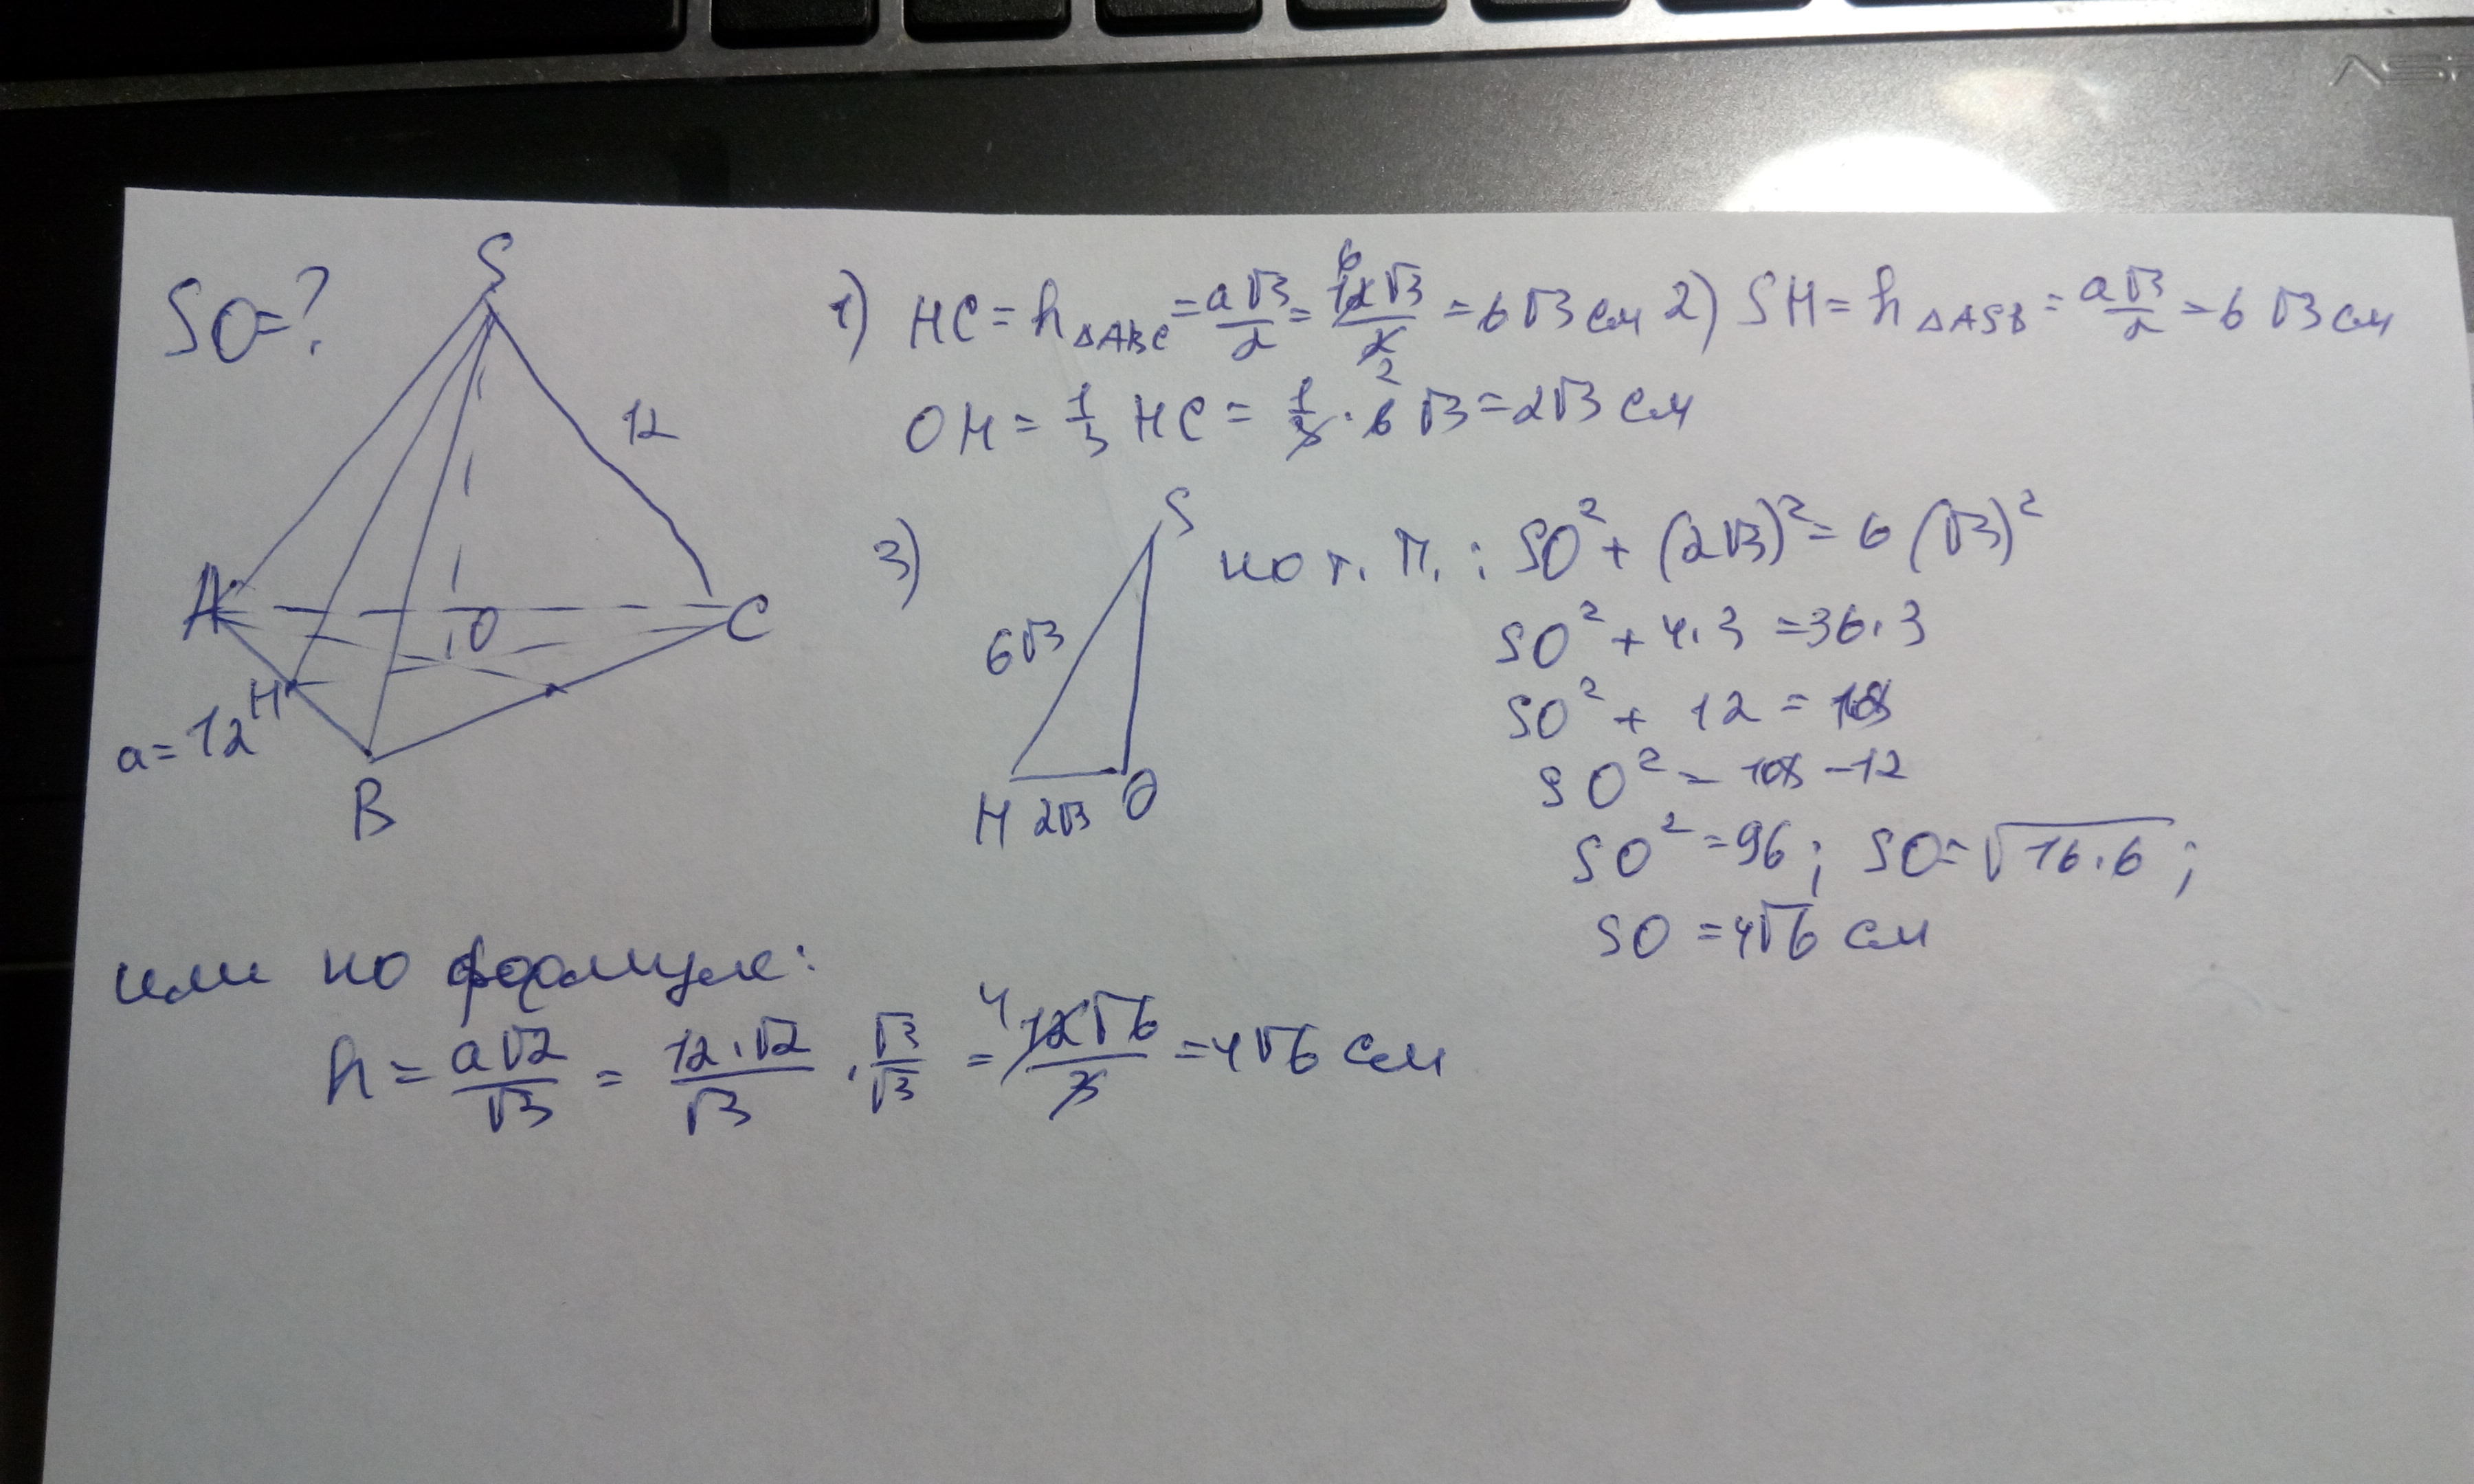 SO=?
S
12
A
O
C
H
a=12
B
1) HC = h△ABC = a√3/2 = 12√3/2 = 6√3 см 2) SH = h△ASB = a√3/2 = 6√3 см
6
2
OH = 1/3 HC = 1/3 · 6√3 = 2√3 см
3)
S
6√3
H 2√3 O
по т. П. : SO² + (2√3)² = 6(√3)²
SO² + 4·3 = 36·3
SO² + 12 = 108
SO² = 108 - 12
SO² = 96 ; SO = √16·6 ;
SO = 4√6 см
или по формуле:
h = a√2/√3 = 12·√2/√3 · √3/√3 = 12√6/3 = 4√6 см
4